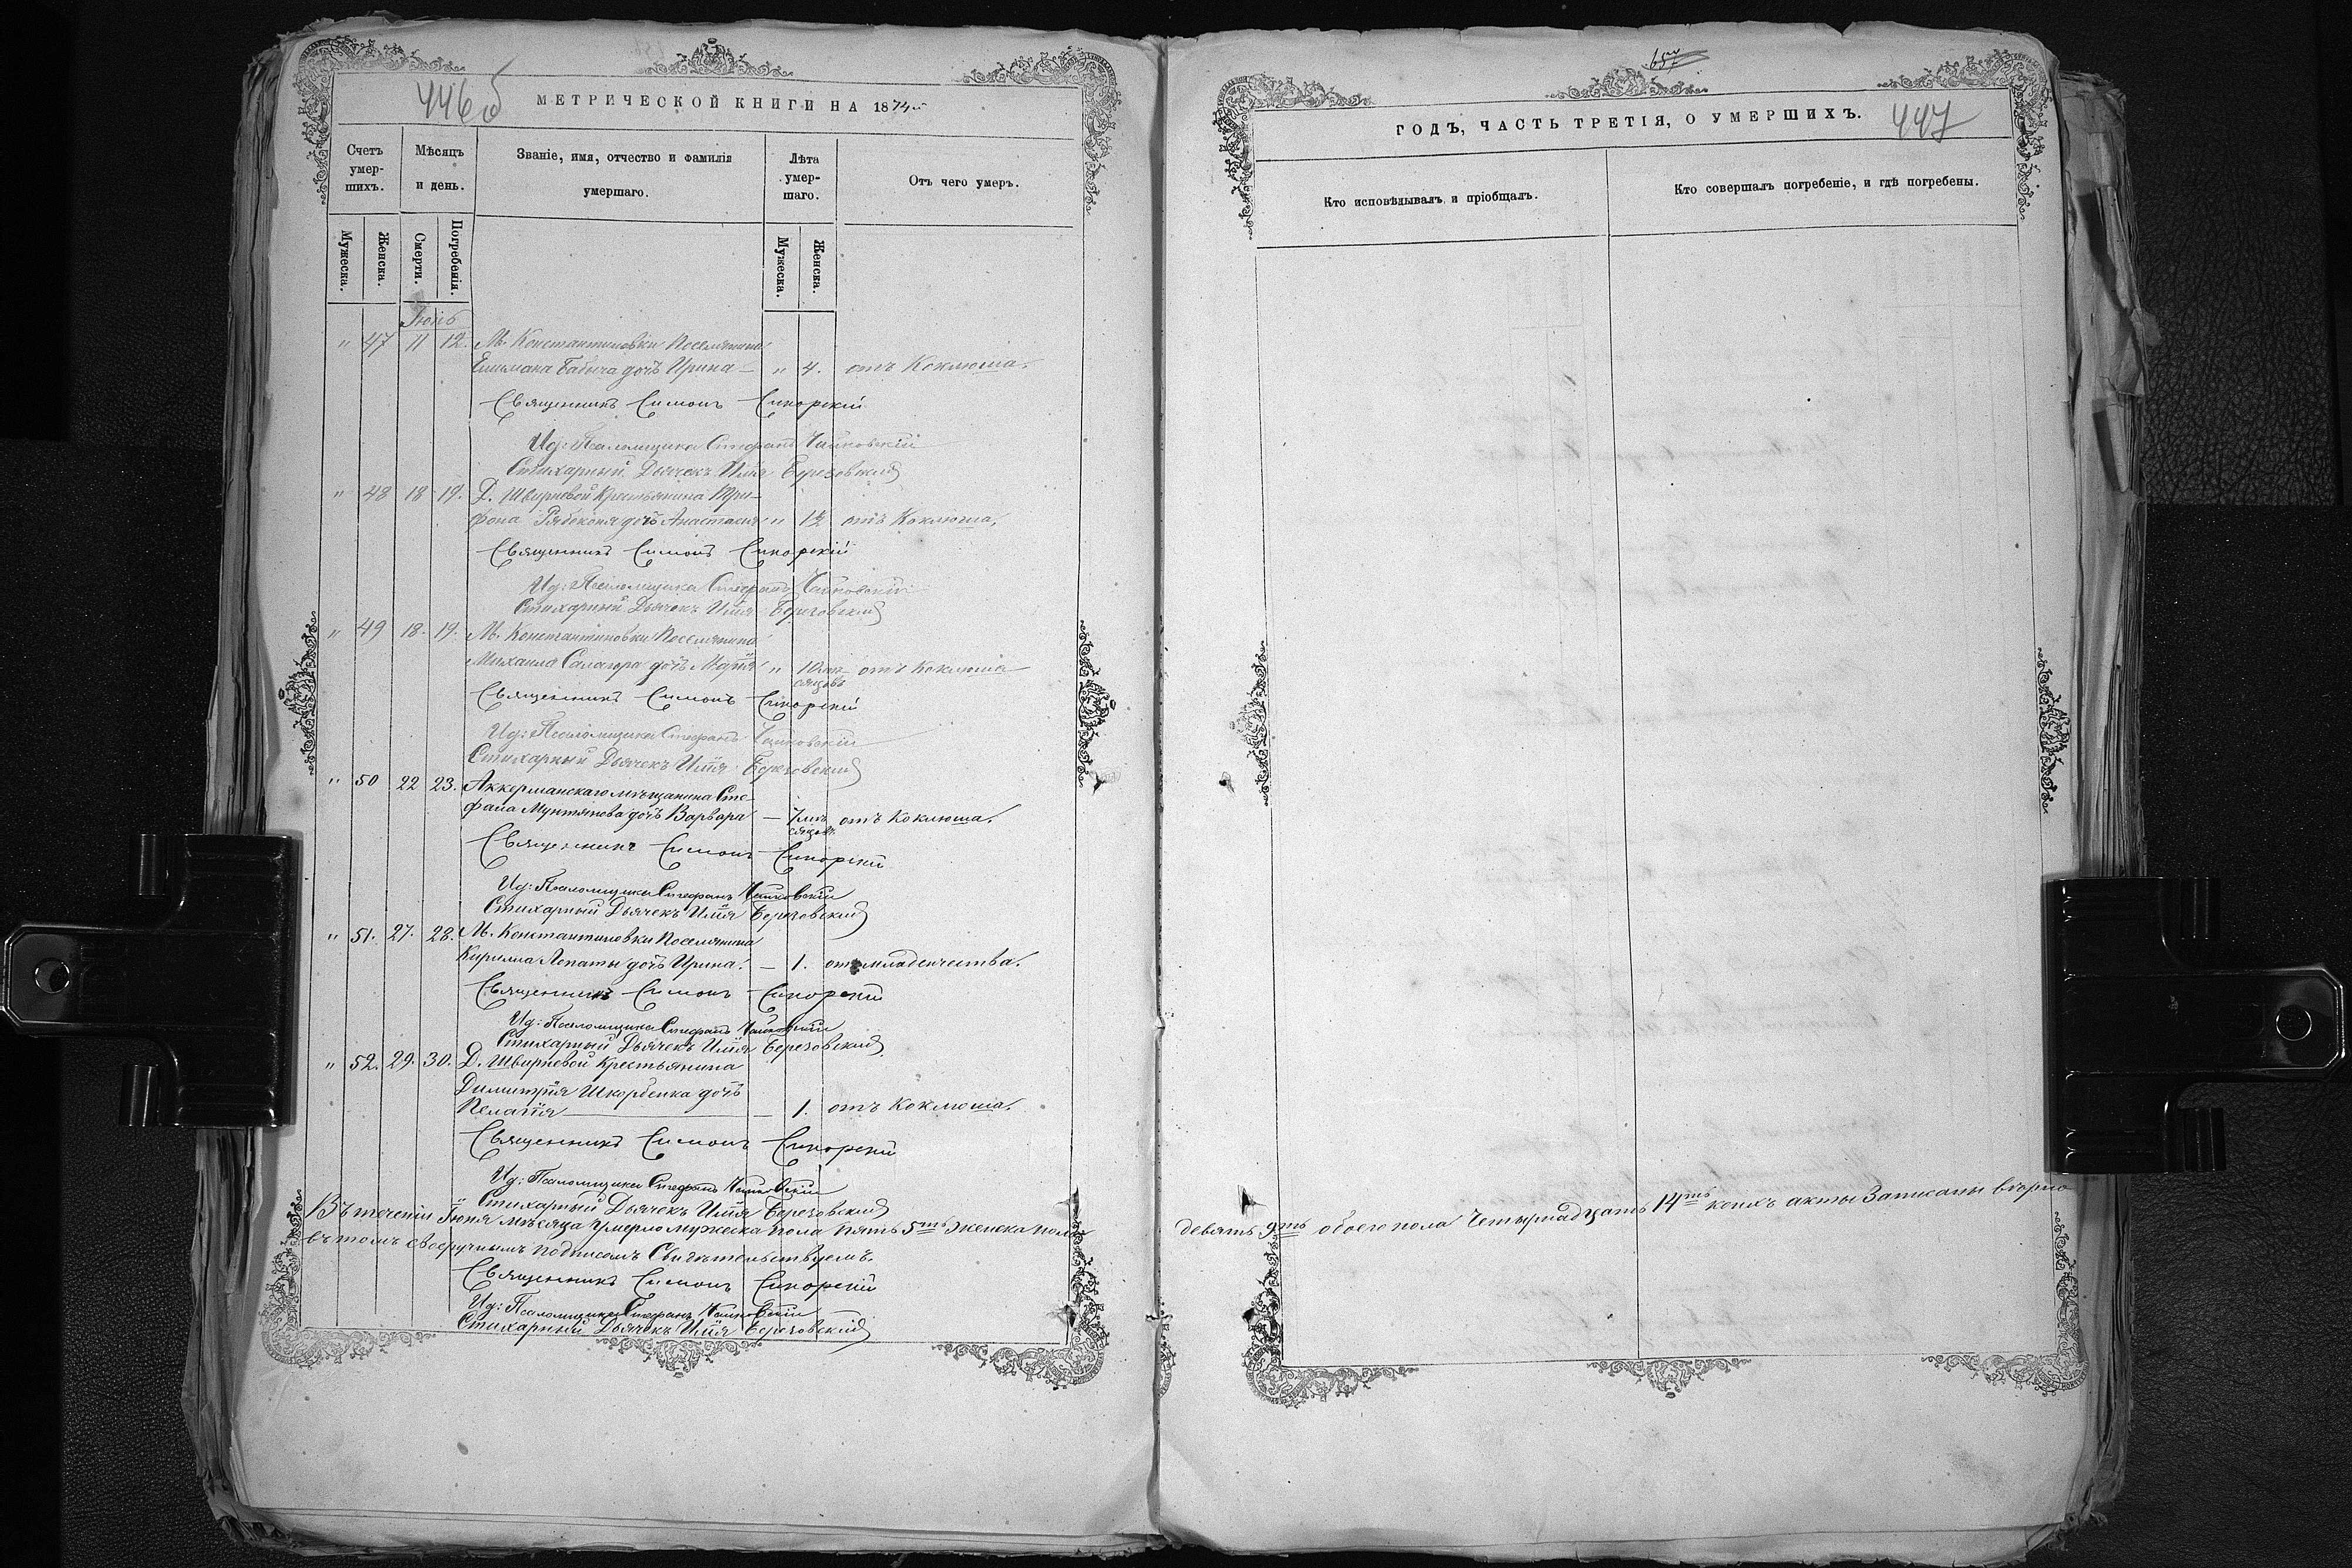 446об
МЕТРИЧЕСКОЙ КНИГИ НА 1874й
Счетъ умер-шихъ.
Мѣсяцъ и день.
Званіе, имя, отчество и фамилія умершаго.
Лѣта умер-шаго.
Отъ чего умеръ.
Мужеска.
Женска.
Смерти.
Погребенія.
Мужеска.
Женска.
Іюнь
" 47 11 12. М. Константиновки Поселянина
Бабича дочь Ирина — " 4. отъ Коклюша.
Священникъ Симонъ Сикорскій
Ид: Псаломщика Стефанъ Чайковскій
Стихарный Дьячекъ Илія Березовскій
" 48 18 19. Д. Швыревой Крестьянина Три-
фона Рябоконя дочь Анастасія " 1½ отъ Коклюша.
Священникъ Симонъ Сикорскій
Ид: Псаломщика Стефанъ Чайковскій
Стихарный Дьячекъ Илія Березовскій
" 49 18. 19. М. Константиновки Поселянина
Михаила Салагора дочь Марія " 10 мѣ-
сяцовъ отъ Коклюша
Священникъ Симонъ Сикорскій
Ид: Псаломщика Стефанъ Чайковскій
Стихарный Дьячекъ Илія Березовскій
" 50 22 23. Аккерманскаго мѣщанина Сте-
фана Мунтянова дочь Варвара — 7 мѣ-
сяцовъ. отъ Коклюша.
Священникъ Симонъ Сикорскій
Ид: Псаломщика Стефанъ Чайковскій
Стихарный Дьячекъ Илія Березовскій
" 51. 27. 28. М. Константиновки Поселянина
Кирилла Лопаты дочь Ирина. — 1. отъ младенчества.
Священникъ Симонъ Сикорскій
Ид: Псаломщика Стефанъ Чайковскій
Стихарный Дьячекъ Илія Березовскій
" 52. 29. 30. Д. Швыревой Крестьянина
Димитрія Шкорбенка дочь
Пелагія — 1. отъ Коклюша.
Священникъ Симонъ Сикорскій
Ид: Псаломщика Стефанъ Чайковскій
Стихарный Дьячекъ Илія Березовскій
Въ теченіи Іюня мѣсяца умерло мужеска пола пять 5ть женска пола
въ томъ своеручнымъ подписомъ Свидѣтельствуемъ.
Священникъ Симонъ Сикорскій
Ид: Псаломщика Стефанъ Чайковскій
Стихарный Дьячекъ Илія Березовскій
657
ГОДЪ, ЧАСТЬ ТРЕТІЯ, О УМЕРШИХЪ.
447
Кто исповѣдывалъ и пріобщалъ.
Кто совершалъ погребеніе, и гдѣ погребены.
девять 9ть обоего пола Четырнадцать 14ть коихъ акты Записаны вѣрно